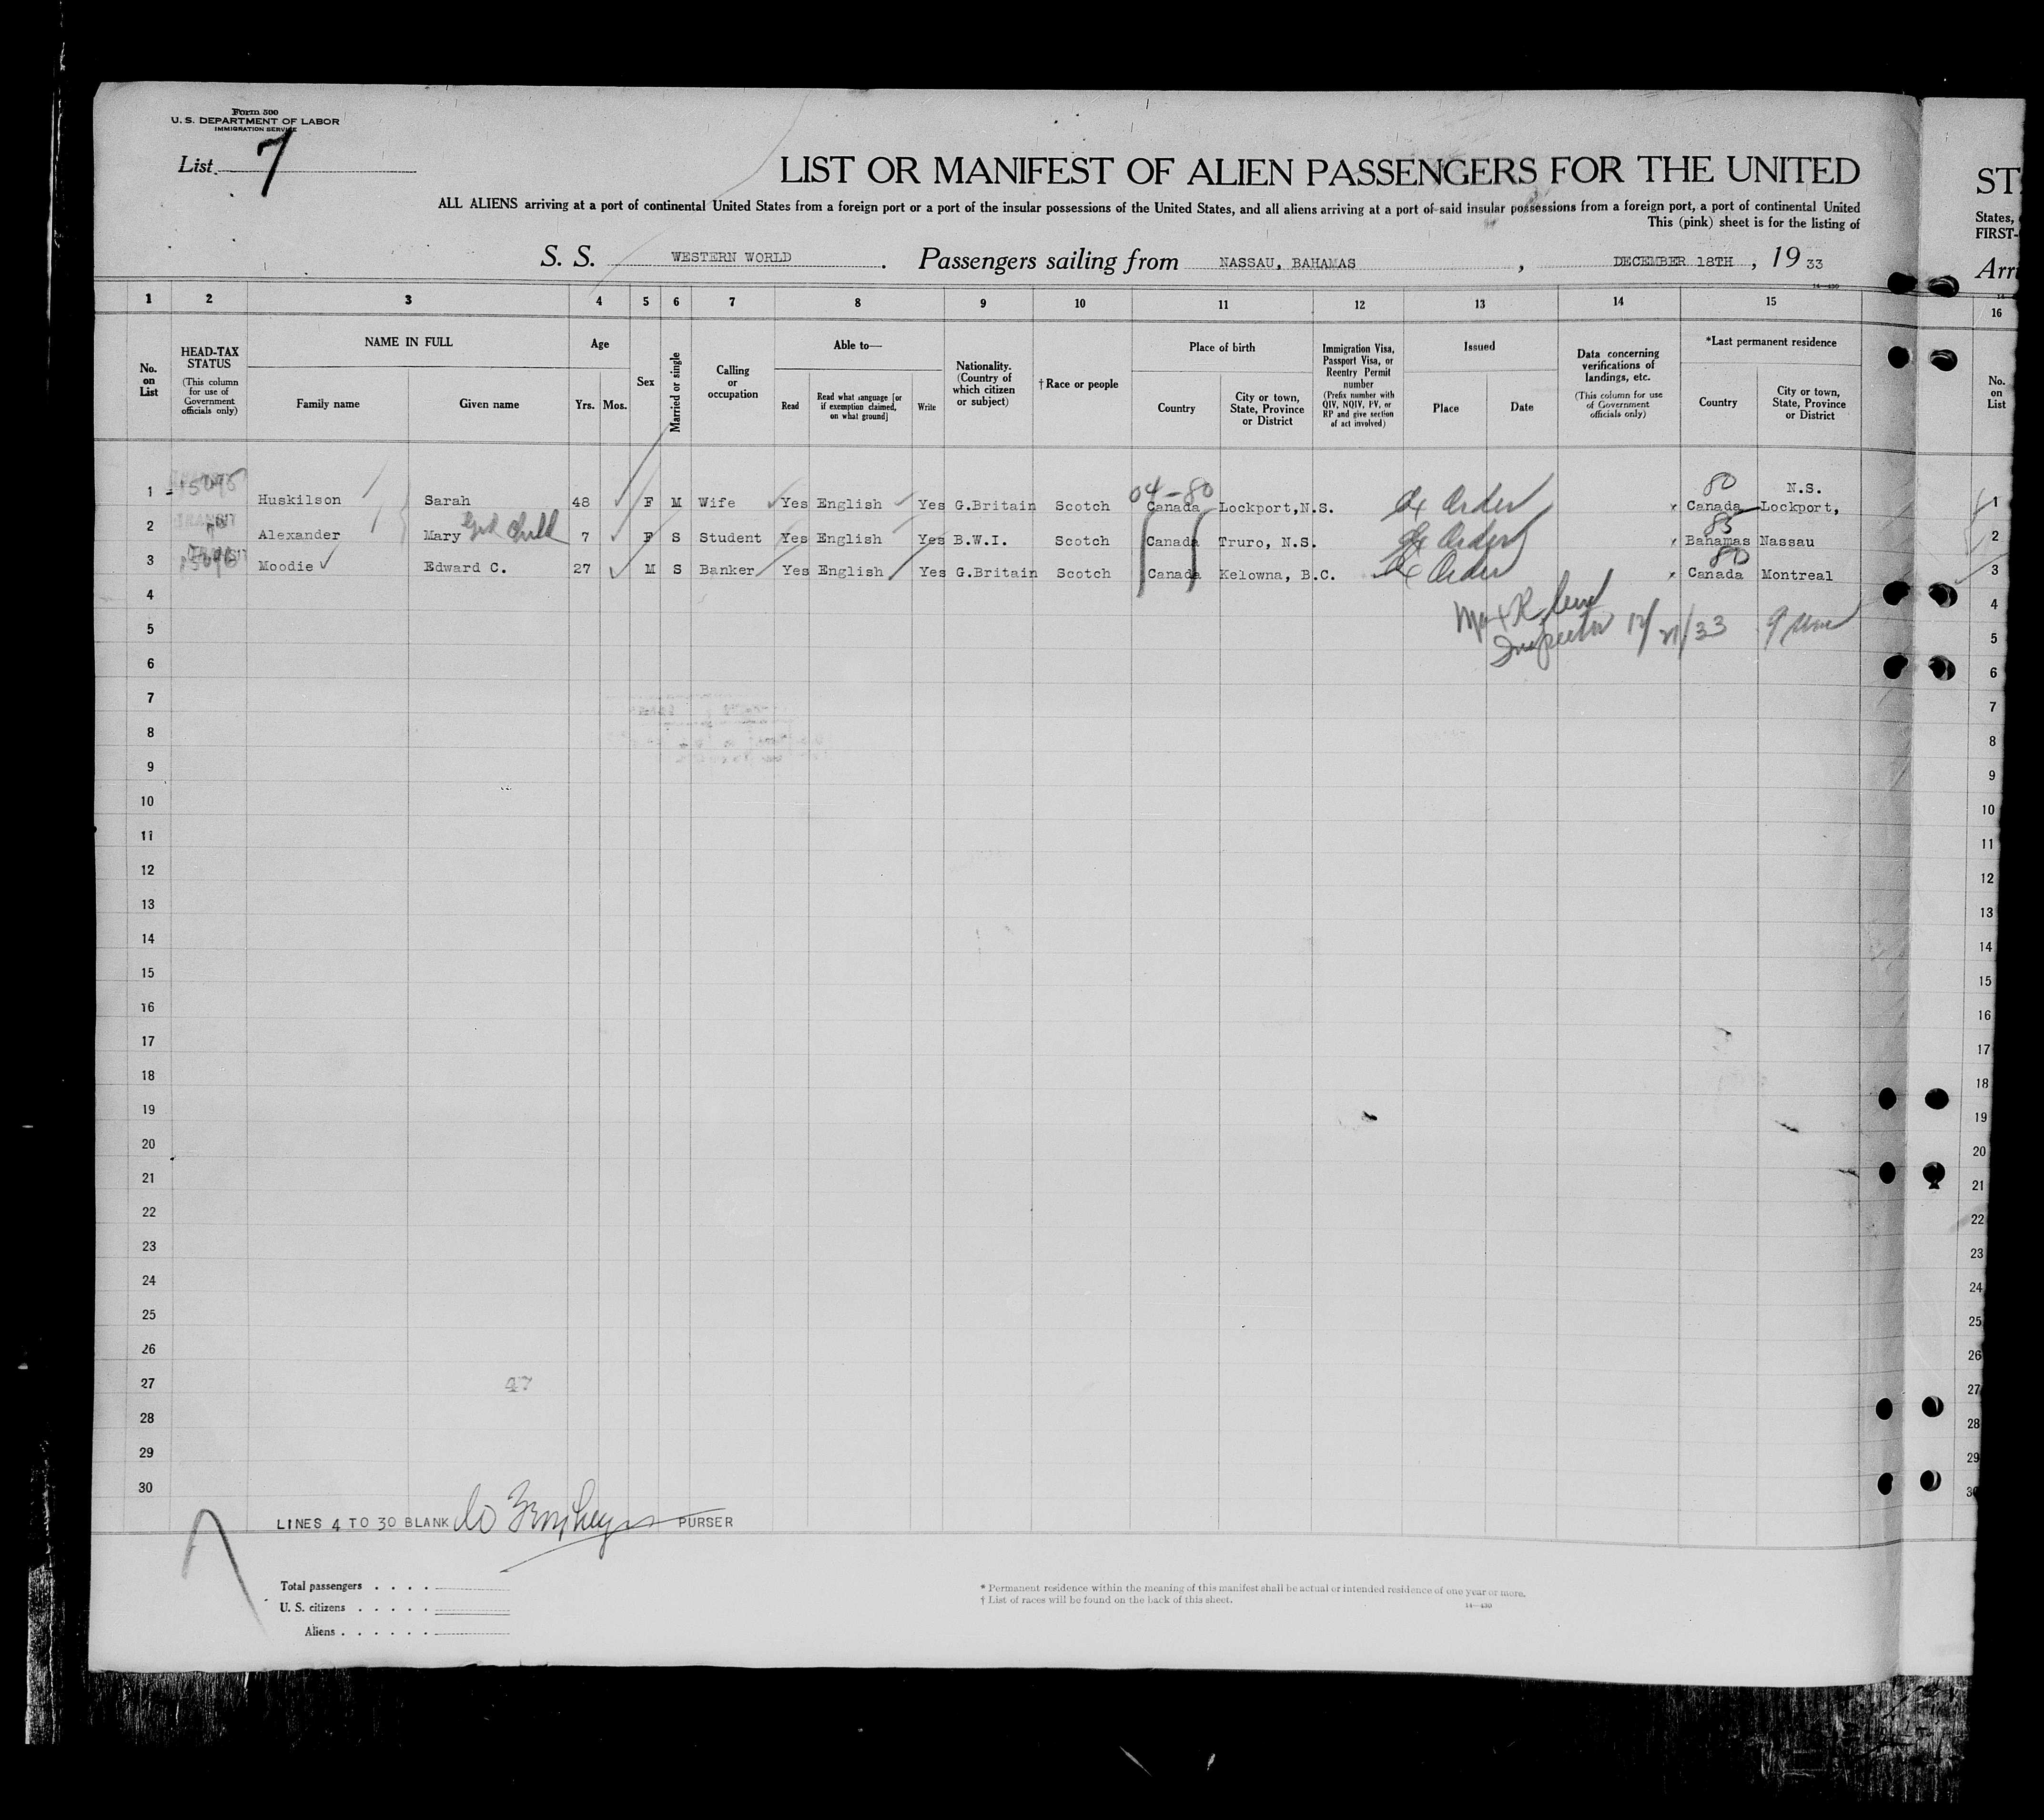 Form 500
U. S. DEPARTMENT OF LABOR
IMMIGRATION SERVICE
List 7
LIST OR MANIFEST OF ALIEN PASSENGERS FOR THE UNITED
ST
ALL ALIENS arriving at a port of continental United States from a foreign port or a port of the insular possessions of the United States, and all aliens arriving at a port of said insular possessions from a foreign port, a port of continental United
States,
This (pink) sheet is for the listing of
FIRST-
S. S. WESTERN WORLD. Passengers sailing from NASSAU, BAHAMAS, DECEMBER 18TH, 19 33
Arri
14—430
1 2 3 4 5 6 7 8 9 10 11 12 13 14 15 16
No. on List
HEAD-TAX STATUS (This column for use of Government officials only)
NAME IN FULL
Family name
Given name
Age
Yrs. Mos.
Sex
Married or single
Calling or occupation
Able to—
Read
Read what language [or if exemption claimed, on what ground]
Write
Nationality. (Country of which citizen or subject)
† Race or people
Place of birth
Country
City or town, State, Province or District
Immigration Visa, Passport Visa, or Reentry Permit number (Prefix number with QIV, NQIV, PV, or RP and give section of act involved)
Issued
Place
Date
Data concerning verifications of landings, etc. (This column for use of Government officials only)
*Last permanent residence
Country
City or town, State, Province or District
No. on List
04-80
80 N.S.
1 Huskilson Sarah 48 F M Wife Yes English Yes G.Britain Scotch Canada Lockport,N.S. Order x Canada Lockport, 1
85
2 TRANSIT Alexander Mary 7 F S Student Yes English Yes B.W.I. Scotch Canada Truro, N.S. Order x Bahamas Nassau 2
80
3 Moodie Edward C. 27 M S Banker Yes English Yes G.Britain Scotch Canada Kelowna, B.C. Order x Canada Montreal 3
4 4
Inspector 12/21/33
5 5
6 6
7 7
8 8
9 9
10 10
11 11
12 12
13 13
14 14
15 15
16 16
17 17
18 18
19 19
20 20
21 21
22 22
23 23
24 24
25 25
26 26
27 47 27
28 28
29 29
30 30
LINES 4 TO 30 BLANK PURSER
Total passengers . . . .
U. S. citizens . . . . .
Aliens . . . . . .
* Permanent residence within the meaning of this manifest shall be actual or intended residence of one year or more.
† List of races will be found on the back of this sheet.
14—430